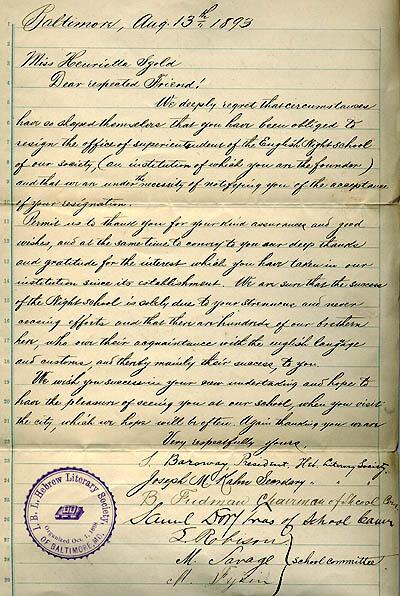 Baltimore, Aug. 13th, 1893
Miss Henrietta Szold
Dear respected Friend!
We deeply regret that circumstances
have so shaped themselves that you have been obliged to
resign the office of superintendent of the English Night school
of our society, (an institution of which you are the founder)
and that we are under the necessity of notifying you of the acceptance
of your resignation.
Permit us to thank you for your kind assurances and good
wishes, and at the same time to convey to you our deep thanks
and gratitude for the interest which you have taken in our
institution since its establishment. We are sure that the success
of the Night school is solely due to your strenuous and never
ceasing efforts and that there are hundreds of our brethern
here, who owe their acquaintance with the english language
and customs, and thereby mainly their success, to you.
We wish you success in your new undertaking and hope to
have the pleasure of seeing you at our school, when you visit
the city, which we hope will be often. Again thanking you we are
Very respectfully yours,
S. Baroway, President, Heb. Literary Society.
Joseph M. Kahn Secretary " " "
B. Fridman Chairman of School Com.
of School Com
L. Robison
M. Savage
School Committee
M.
I. B. L. Hebrew Literary Society
Organized Oct. 1, 1888
OF BALTIMORE, MD.